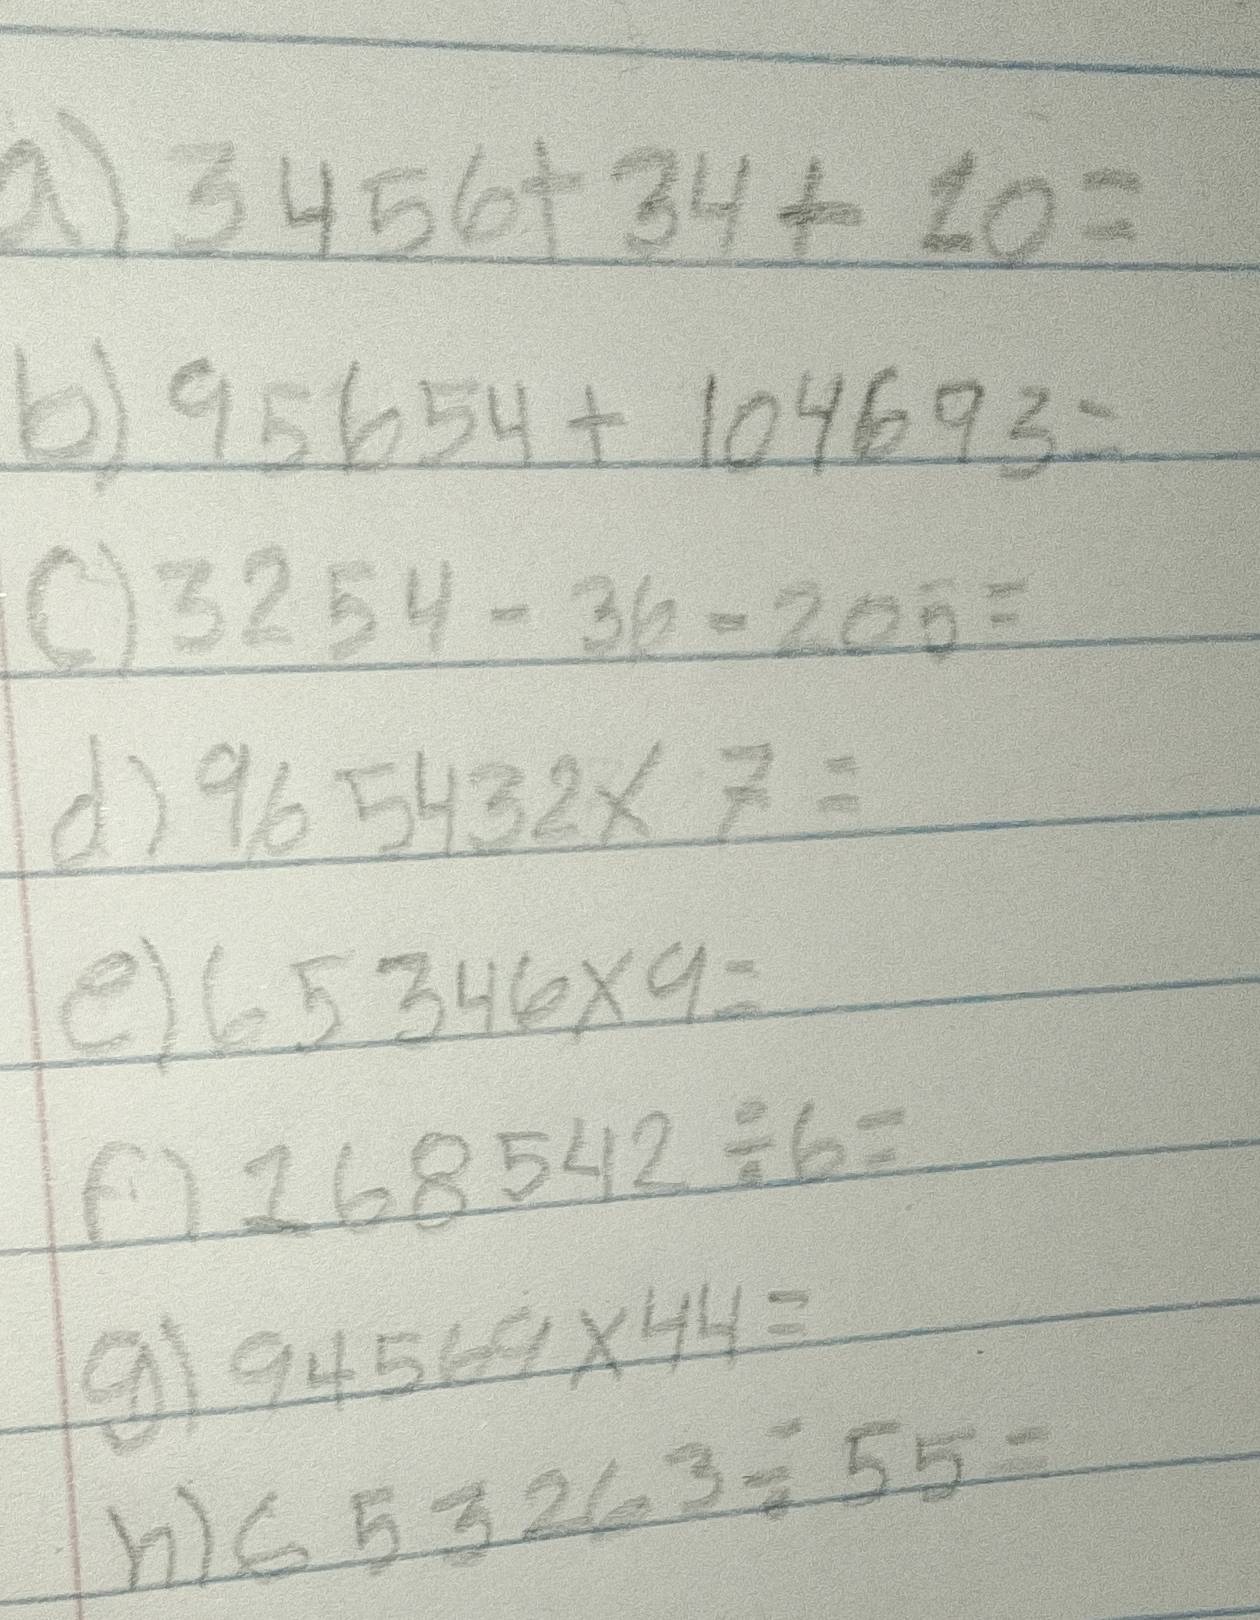 a) 3456+34+10=
b) 95654+104693=
c) 3254-36-205=
d) 965432x7=
e) 65346x9=
f) 168542÷6=
g) 94569x44=
h) 653263÷55=